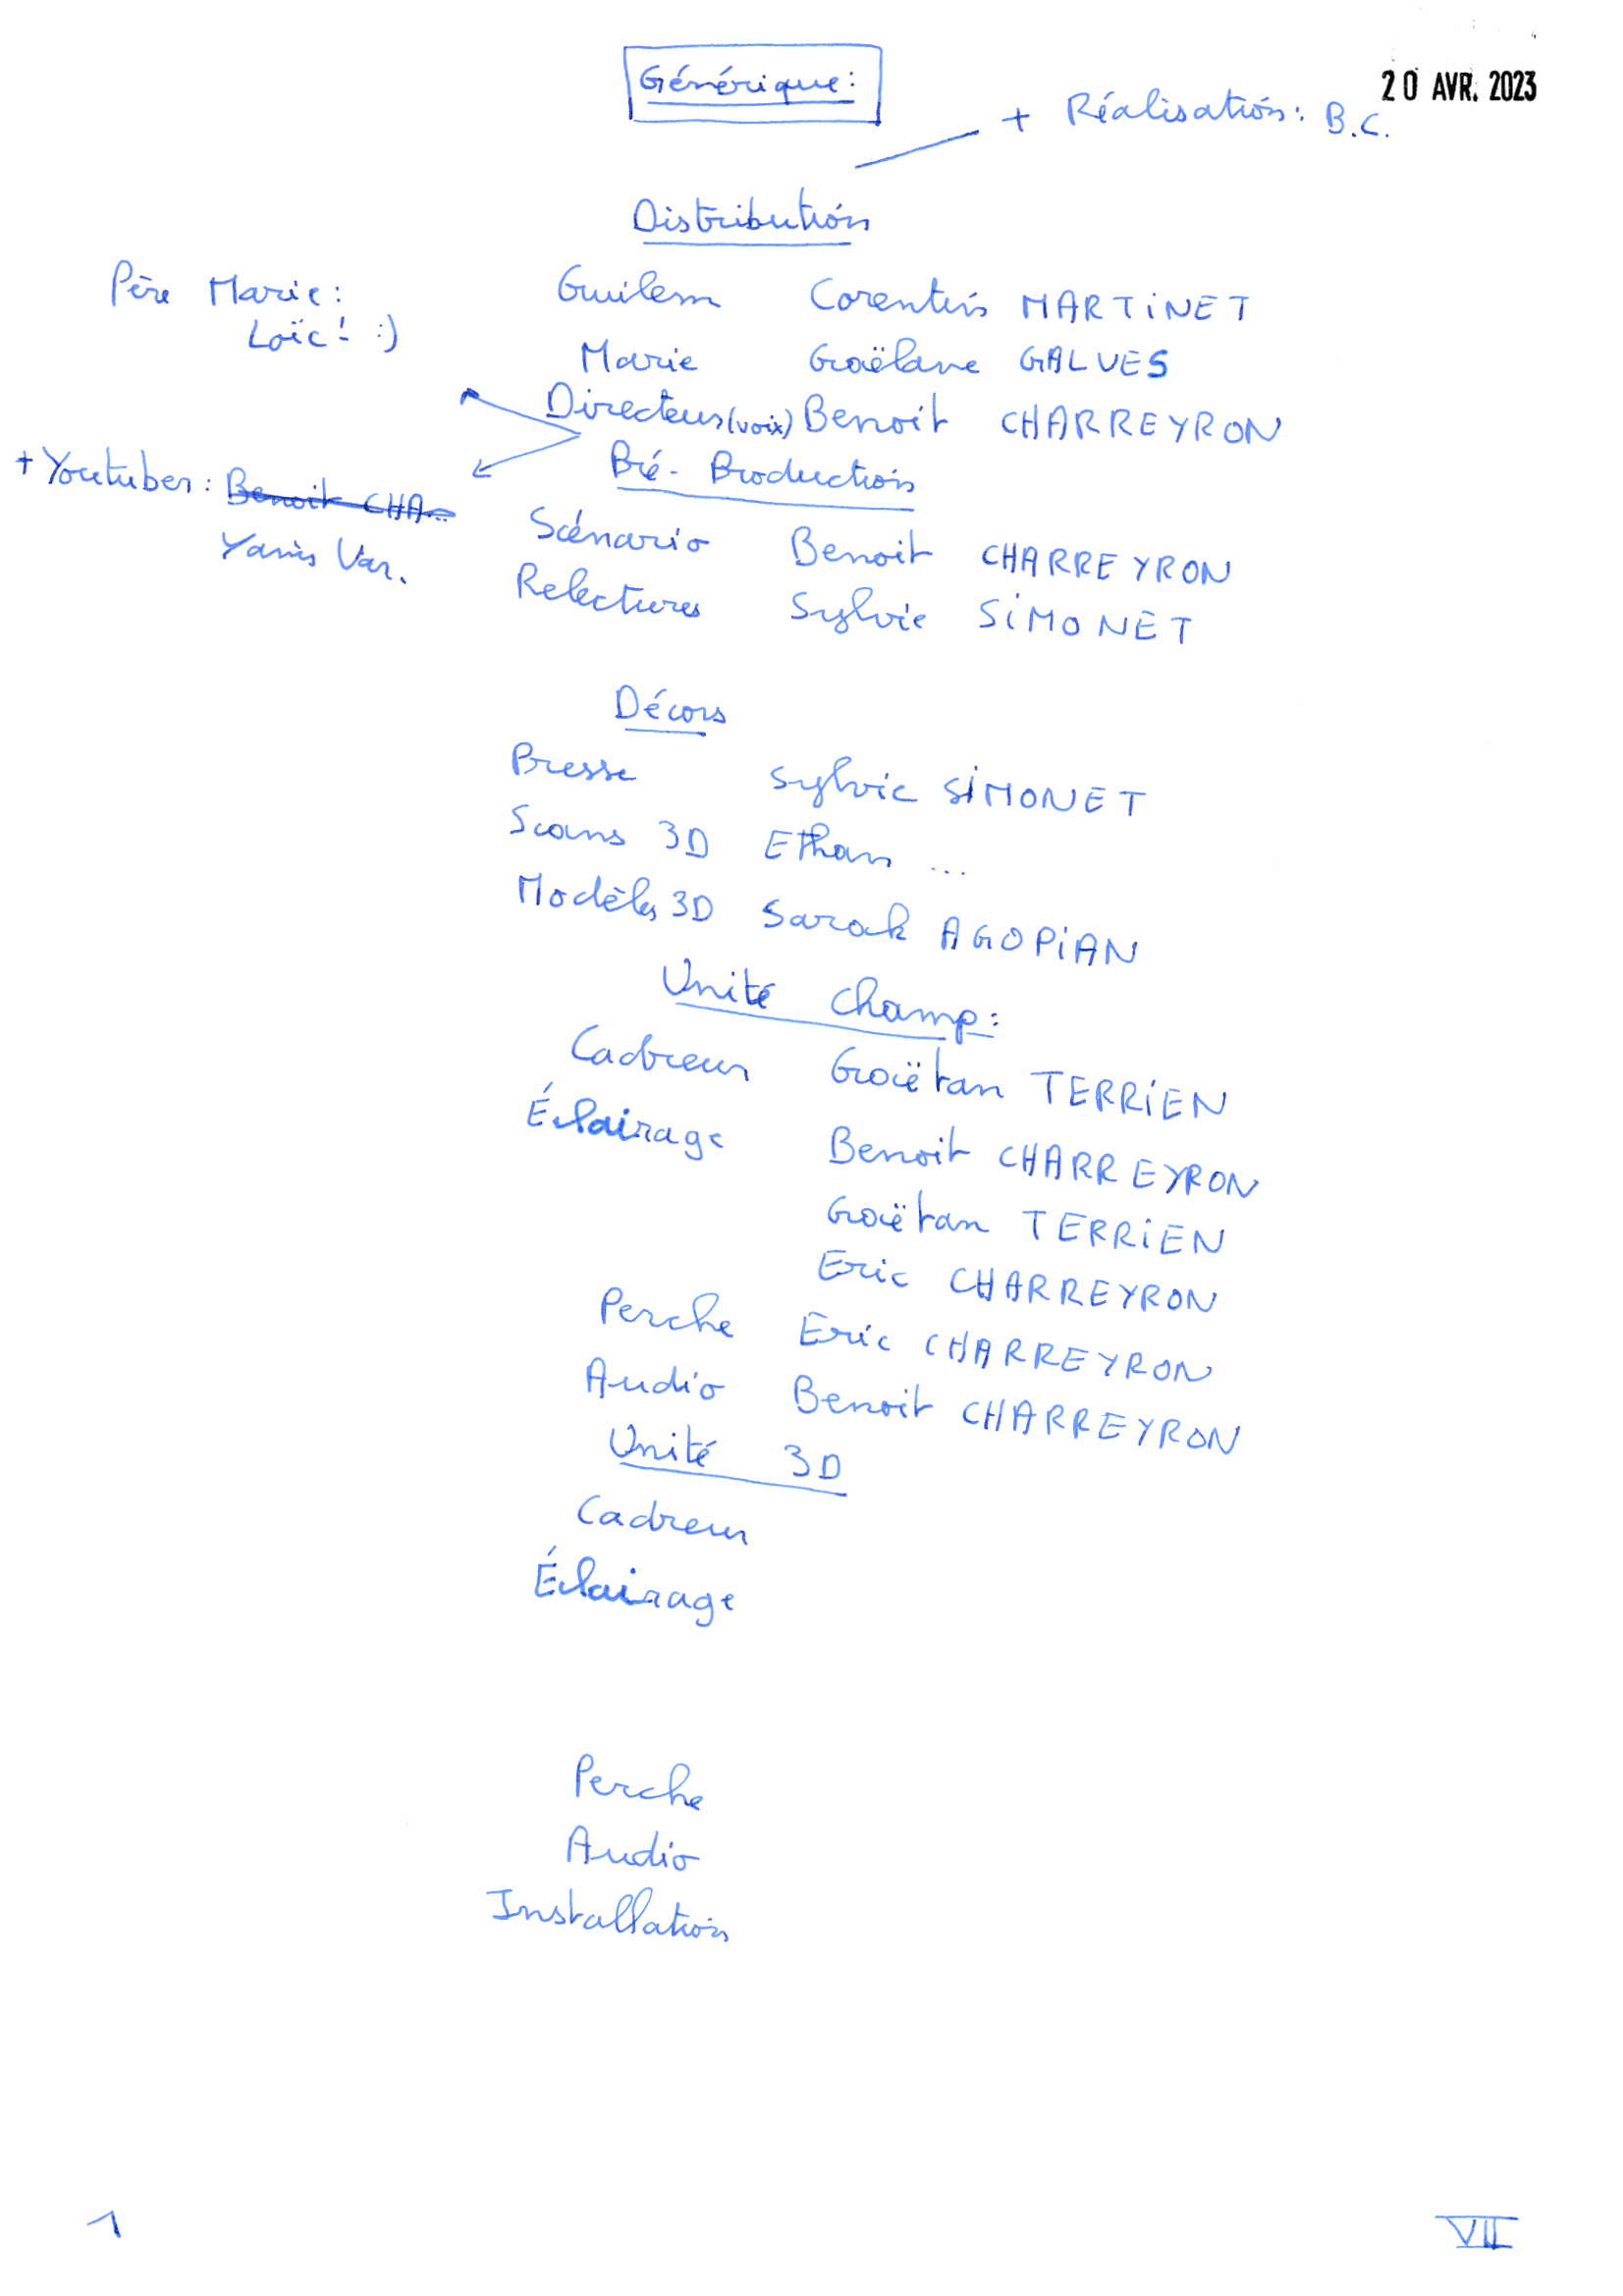 Générique:
20 AVR. 2023
+ Réalisation: B.C.
Distribution
Père Marie:
Loïc! :)
Guilem Corentin MARTINET
Marie Gaëlane GALVES
Directeur (voix) Benoit CHARREYRON
+ Youtuber: Benoit CHA...
Yanis Var.
Pré-Production
Scénario Benoit CHARREYRON
Relectures Sylvie SIMONET
Décors
Presse Sylvie SIMONET
Scans 3D Ethan ...
Modèles 3D Sarah AGOPIAN
Unité Champ:
Cadreur Gaëtan TERRIEN
Éclairage Benoit CHARREYRON
Gaëtan TERRIEN
Eric CHARREYRON
Perche Eric CHARREYRON
Audio Benoit CHARREYRON
Unité 3D
Cadreur
Éclairage
Perche
Audio
Installation
1
VII